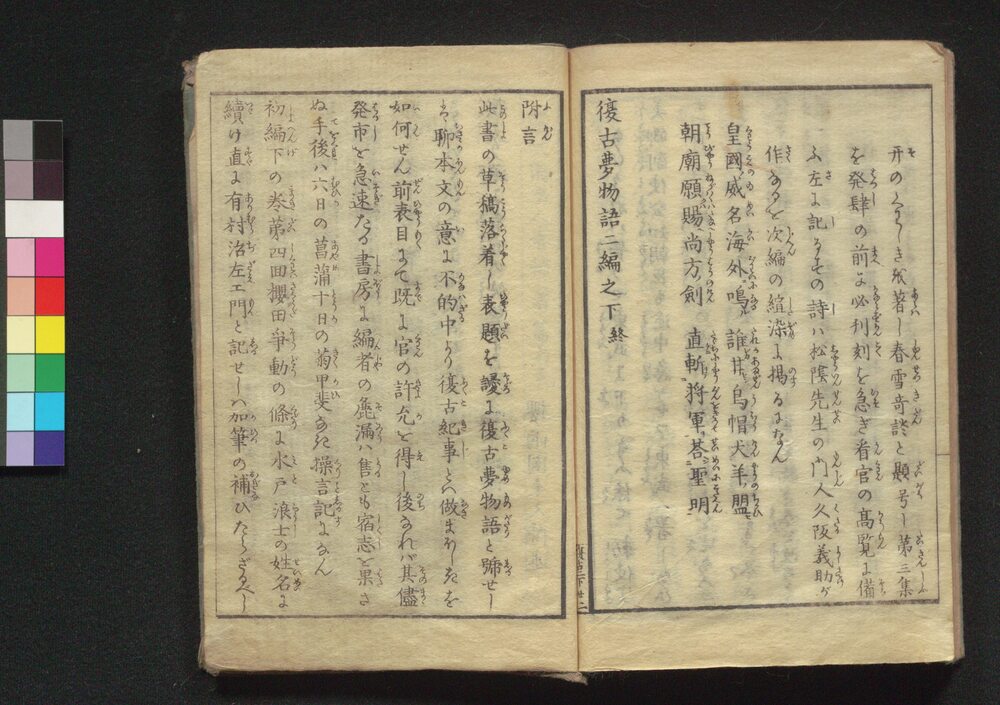 开のくはしきを著し春雪奇談と題号し第三集
を発肆の前に必刋刻を急ぎ看官の髙覧に備
ふ左に記るその詩ハ松陰先生の門人久阪義助が
作なるを次編の絵染に掲るになん
皇國威名海外鳴 誰甘烏帽犬羊盟
朝廟願賜尚方劍 直斬将軍答聖明
復古夢物語二編之下終
附言
此書の草稿落着し表題を謾に復古夢物語と號せし
は聊本文の意に不的中より復古紀事とハ做まほしきを
如何せん前表目にて既に官の許允を得し後なれバ其儘
発市を急速たる書房に編者の麁漏ハ售とも宿志を果さ
ぬ手後ハ六日の菖蒲十日の菊甲斐なき操言記になん
初編下の巻第四回櫻田争動の條に水戸浪士の姓名に
續け直に有村治左エ門と記せしハ加筆の補ひたらざるべし